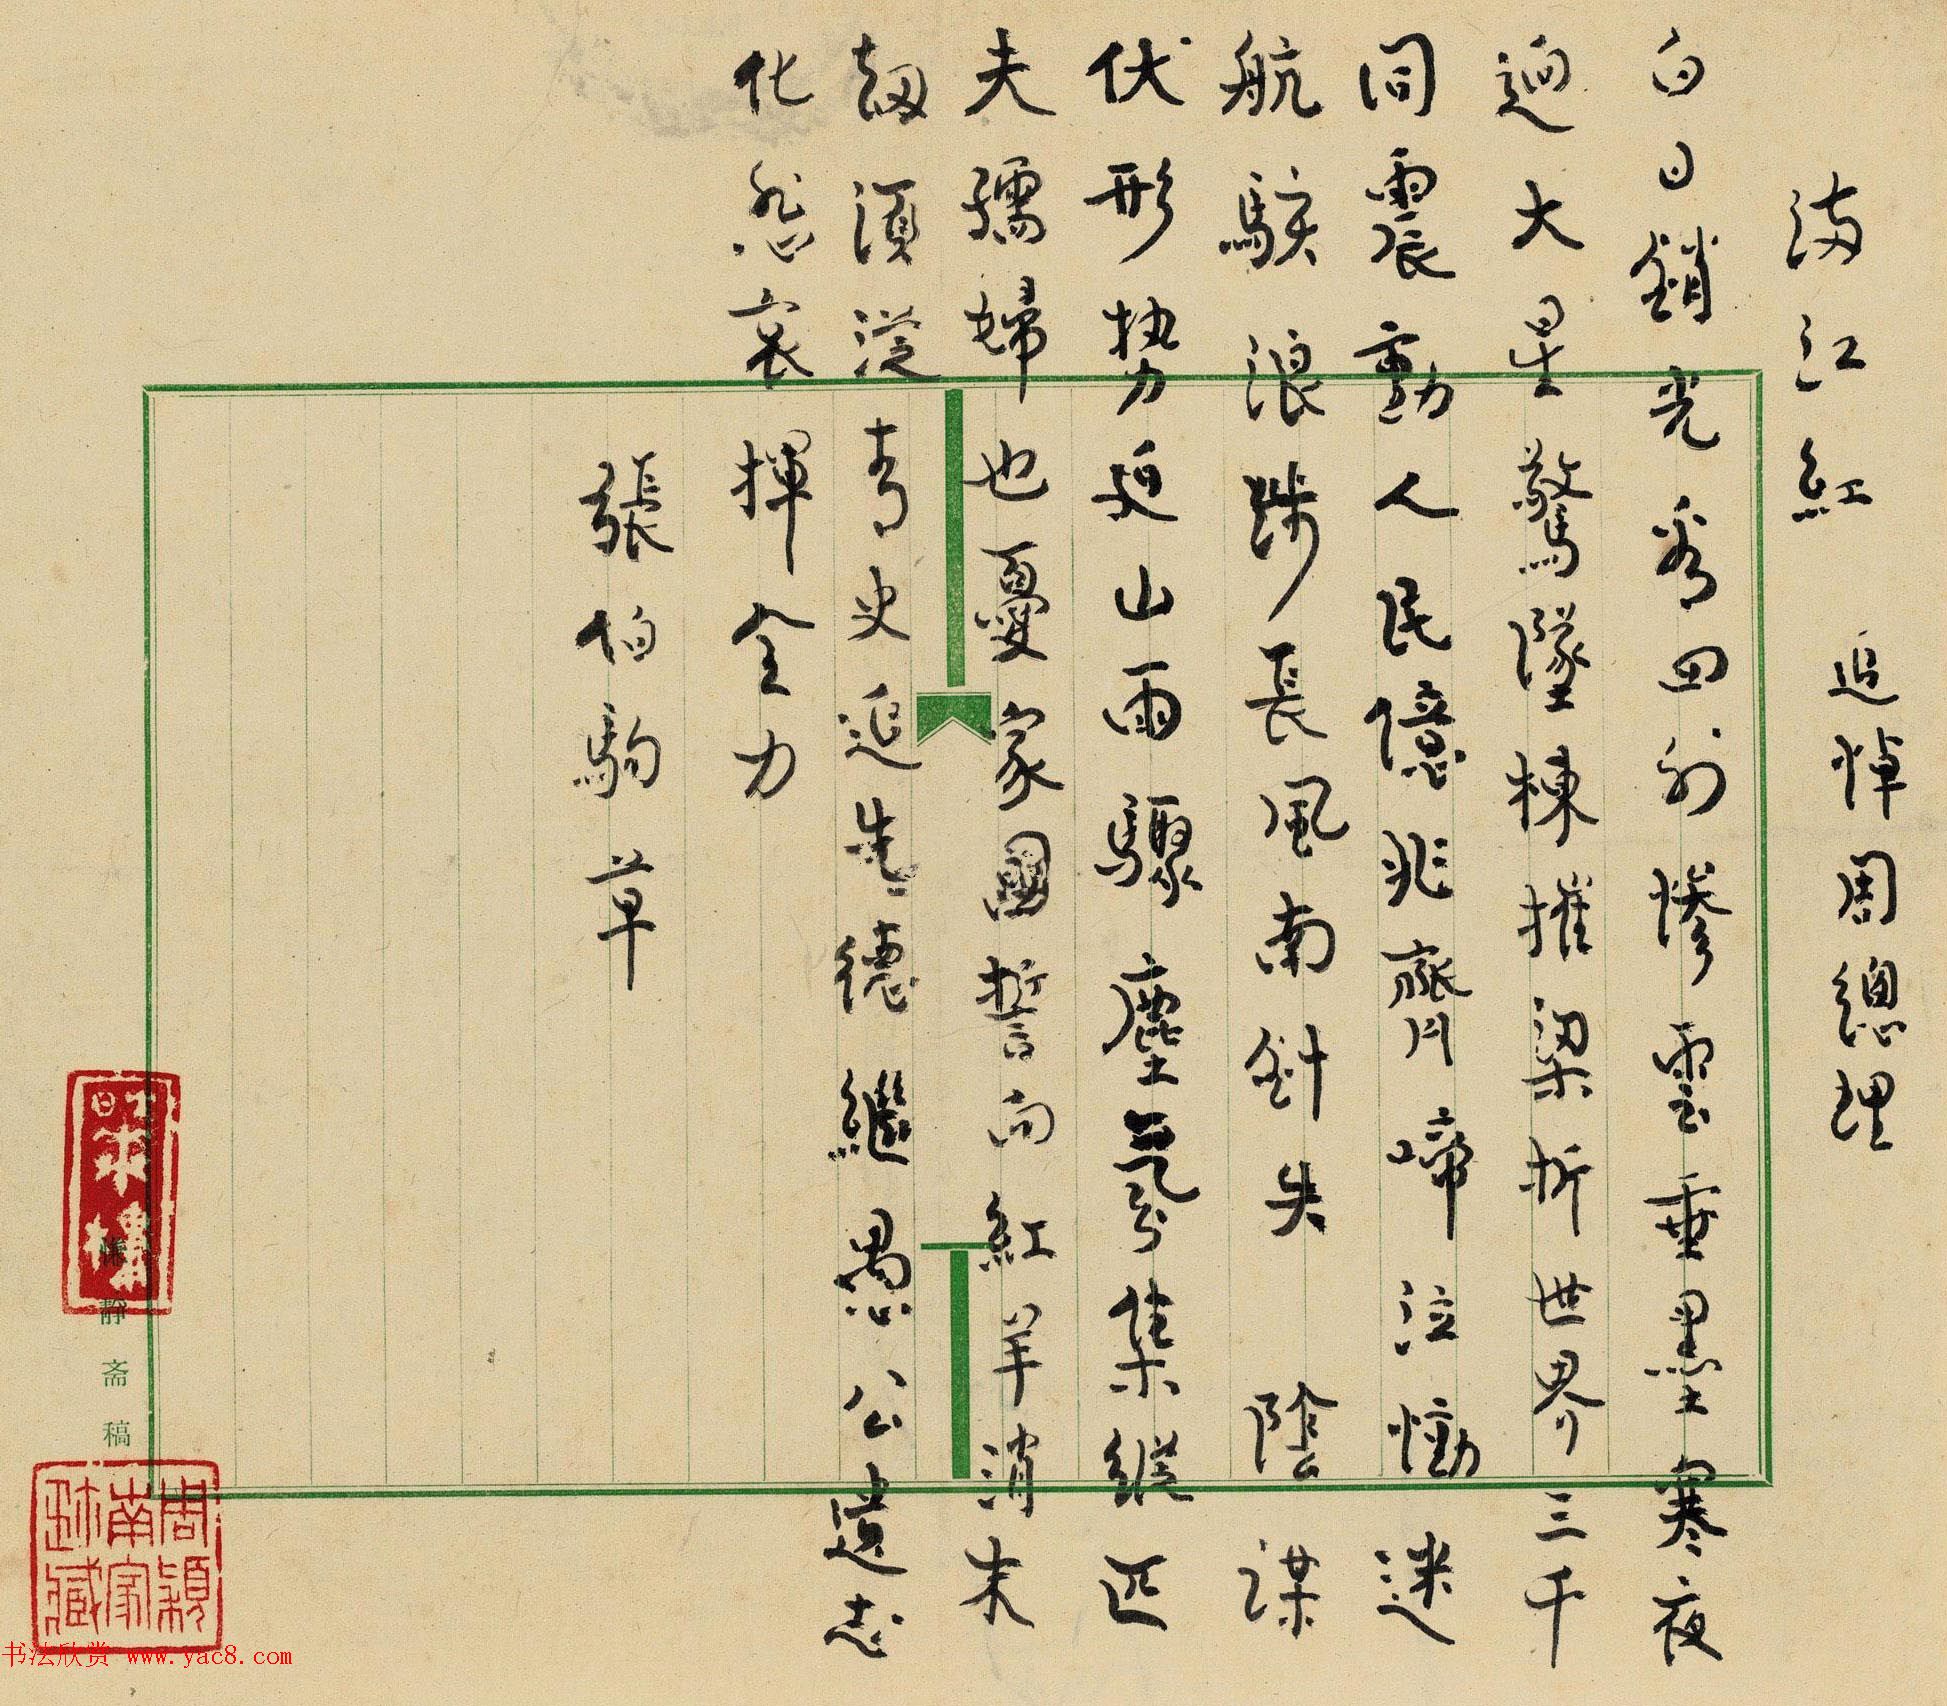 滿江紅 追悼周總理
白日銷光看四慘雲垂墨寒夜
迥大星驚墜棟摧梁折世界三千
同震動人民億兆齊啼泣慟迷
航駭浪涉長風南針失 陰謀
伏形勢山雨驟塵氛集縱匹
夫孺婦也憂家國誓向紅羊消末
劫須從青史延先德繼公遺志
化怨哀揮全力
張伯駒草
靜斋稿
周穎南家珎藏
书法欣赏 www.yac8.com